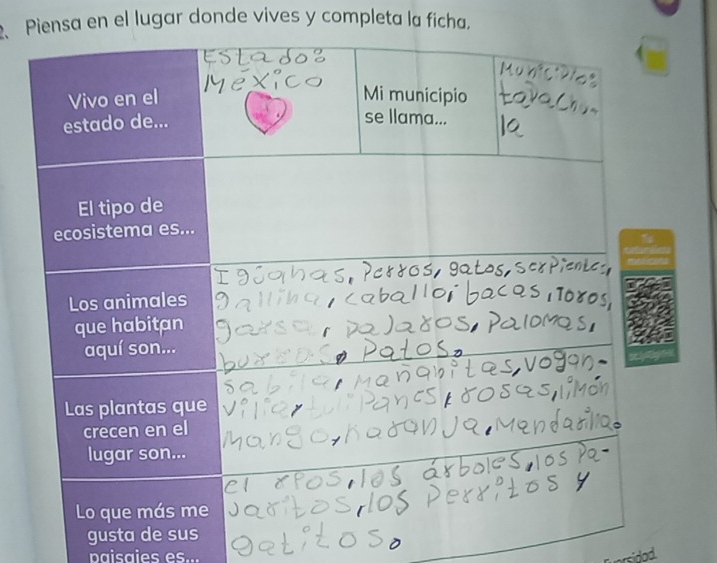 2. Piensa en el lugar donde vives y completa la ficha.
Vivo en el
estado de...
Estado:
México
Mi municipio
se llama...
Municipio:
tapachu-
la
El tipo de
ecosistema es...
Los animales
que habitan
aquí son...
Iguanas, Perros, gatos, serpientes,
gallina, caballo, bacas, Toros,
garsa, pajaros, Palomas,
burros, Patos.
Las plantas que
crecen en el
lugar son...
sabila, mañanitas, vogan-
vilia, tulipanes, rosas, limón
Mango, naranja, Mandarina.
Lo que más me
gusta de sus
paisajes es...
el xpos, los árboles, los pa-
jaritos, los perritos y
gatitos.
Tu